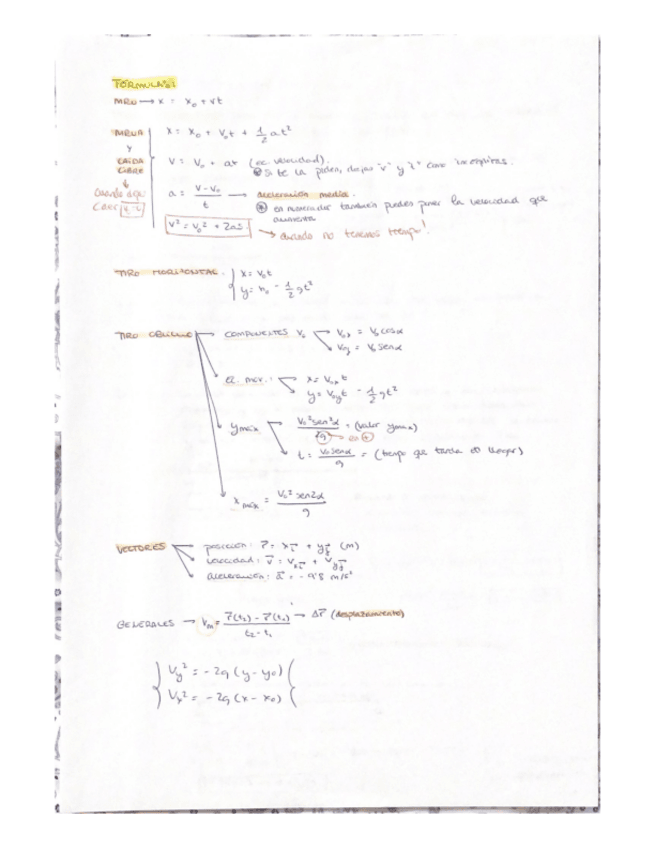 FÓRMULAS:
MRU → x = x₀ + vt
MRUA y CAÍDA LIBRE
x = x₀ + v₀t + 1/2 at²
v = v₀ + at (ec. velocidad).
Si te la piden, dejas "v" y "t" como incógnitas.
a = (v - v₀)/t → aceleración media.
en movimiento también puedes poner la velocidad que aumenta
v² = v₀² + 2as → cuando no tenemos tiempo!
TIRO HORIZONTAL.
x = v₀t
y = h₀ - 1/2 gt²
TIRO OBLICUO → COMPONENTES V₀
V₀ₓ = V₀ cosα
V₀y = V₀ senα
ec. mov.:
x = V₀ₓ t
y = V₀yt - 1/2 gt²
y máx
V₀² sen²α / 2g = (valor ymax)
t = V₀ senα / g = (tiempo que tarda en llegar)
x máx = V₀² sen2α / g
VECTORES
posición: r⃗ = x i⃗ + y j⃗ (m)
velocidad: v⃗ = Vₓ i⃗ + Vy j⃗
aceleración: a⃗ = -9'8 m/s²
GENERALES → Vm = (r⃗(t₂) - r⃗(t₁)) / (t₂ - t₁) → Δr⃗ (desplazamiento)
Vy² = -2g (y - y₀)
Vx² = -2g (x - x₀)